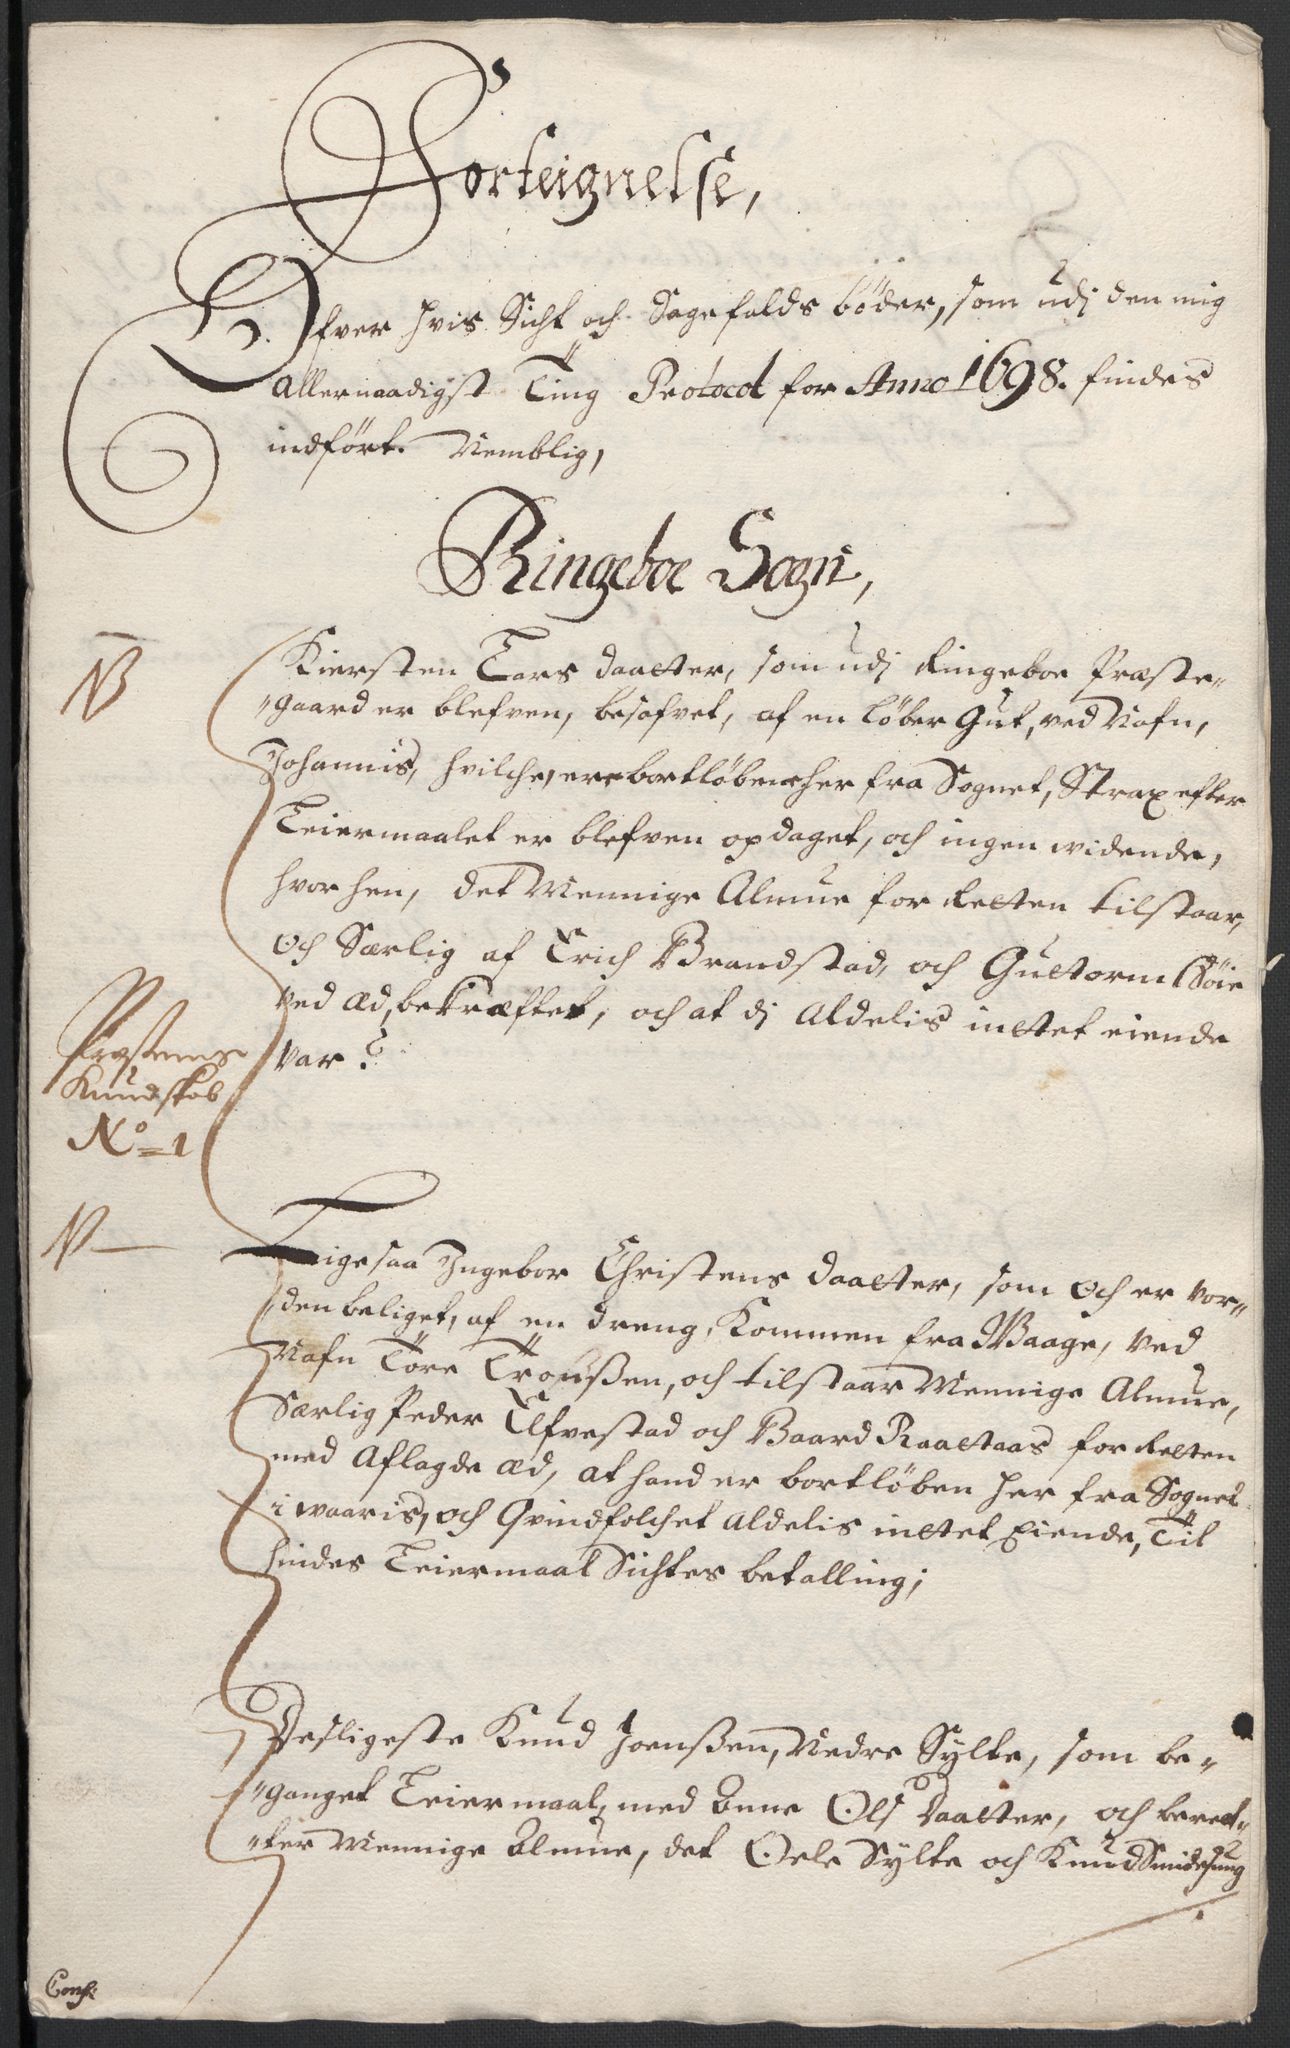 Forteignelse,
Ofver hvis Sicht och Sagefalds bøder, som udj den mig
Allernaadigst Ting Protocol for Anno 1698. findes
indført. Nemblig,
Ringeboe Sogn,
NB
Kiersten Lars daatter, som udj Ringeboe Præste„
„gaard er blefven, besofvet, af en løber Gut, ved Nafn,
Johannis, hvilche, ere bortløben her fra Sognet, Strax efter
Leiermaalet er blefven opdaget, och ingen vidende,
hvor hen, det Mennige Almue for Retten tilstaar,
och Særlig af Erich Brandstad, och Guttorm
ved æd, bekræftet, och at dj Aldelis inttet eiende
var?
Præstens
Kundskob
No= 1
N
Ligesaa Ingebor Christens daatter, som och er vor„
„den beliget, af en dreng, kommen fra Waage, ved
Nafn Tore, och tilstaar Mennige Almue,
Særlig Peder Elfvestad och Baard Raattaas for Retten
med Aflagde æd, at hand er bortløben her fra Sognet
i waaris, och Qvindfolchet Aldelis inttet Eiende, Til
hindes Leiermaal Sichtes betalling;
Desligeste Knud Joenßen, Nedre Sylte, som be„
„ganget Leiermaal, med Anne Ols Daatter, och beret„
„ter Mennige Almue, det Oele Sylte och Knud
Conf: